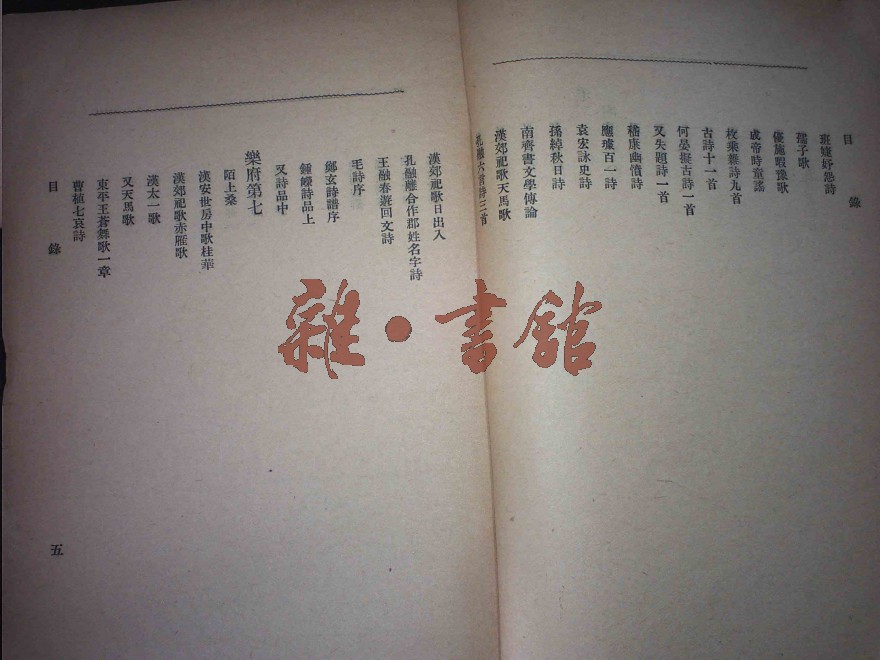 目錄
班婕妤怨詩
孺子歌
優施暇豫歌
成帝時童謠
枚乘雜詩九首
古詩十一首
何晏擬古詩一首
又失題詩一首
嵇康幽憤詩
應璩百一詩
袁宏詠史詩
孫綽秋日詩
南齊書文學傳論
漢郊祀歌天馬歌
孔融六言詩三首
漢郊祀歌日出入
孔融離合作郡姓名字詩
王融春遊回文詩
毛詩序
鄭玄詩譜序
鍾嶸詩品上
又詩品中
樂府第七
陌上桑
漢安世房中歌桂華
漢郊祀歌赤雁歌
漢太一歌
又天馬歌
東平王蒼舞歌一章
曹植七哀詩
目錄
五
雜·書館